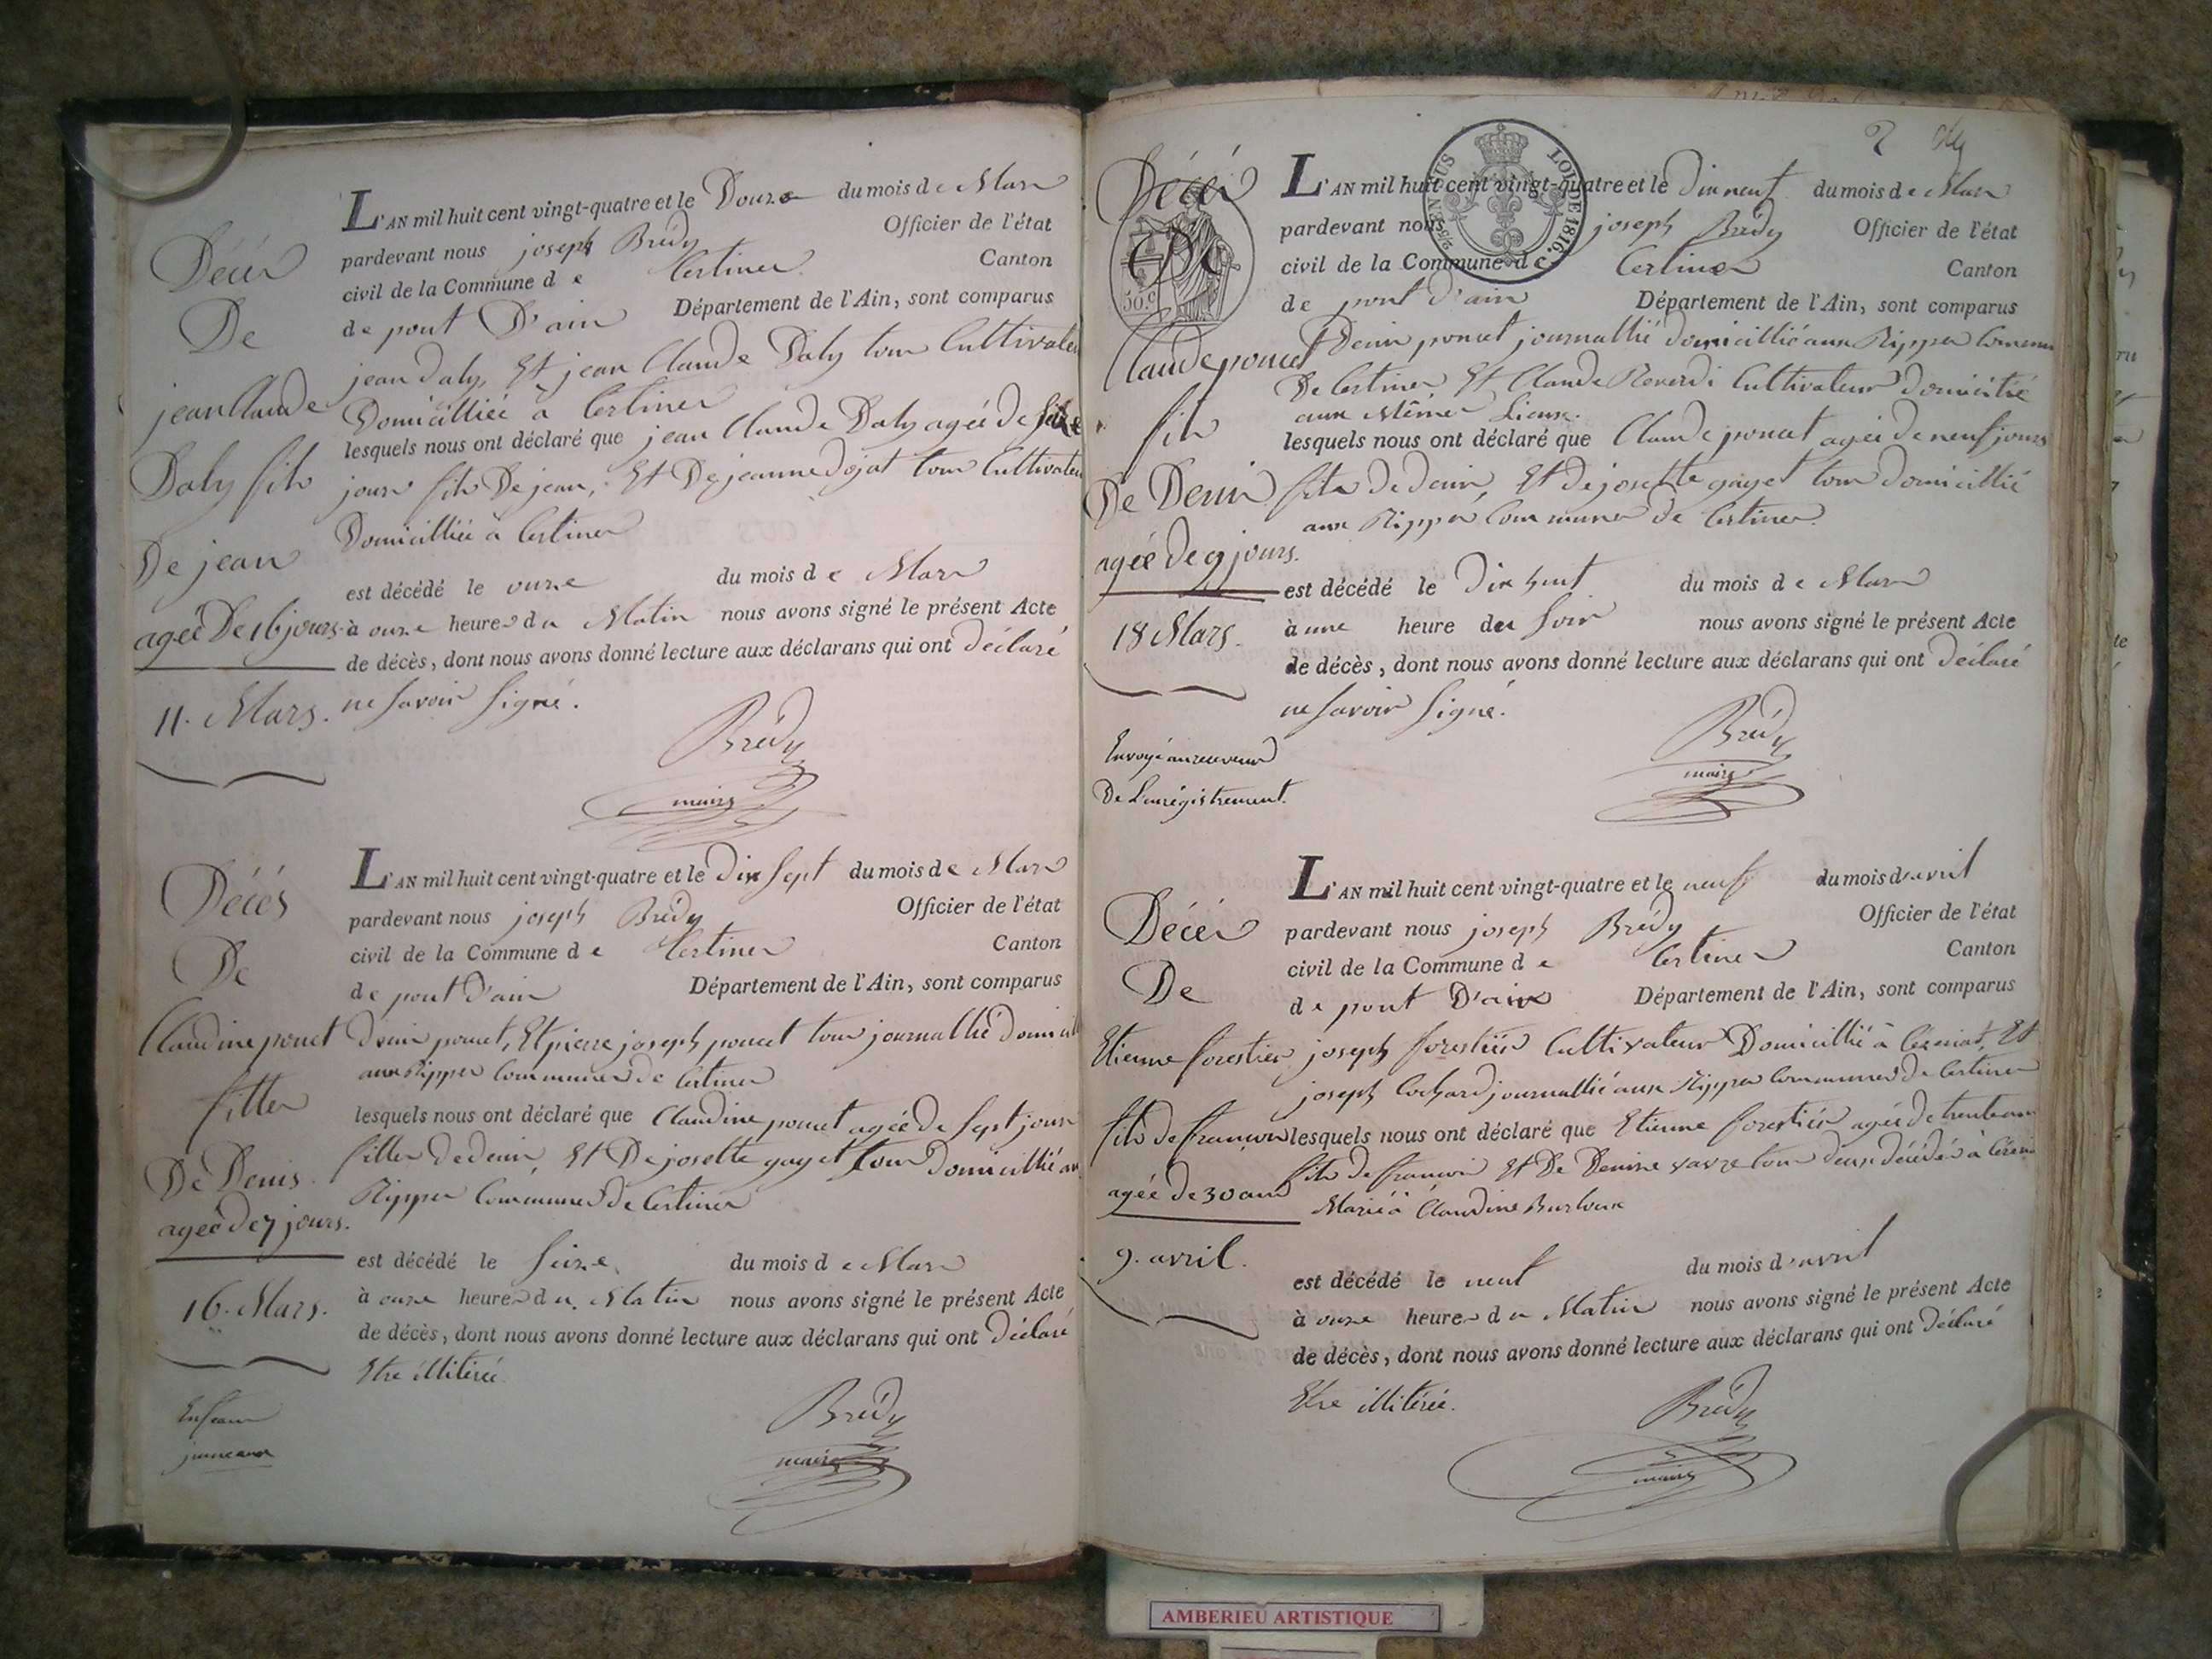 Décès
De
jean Claude
Daly fils
De jean
agée De 16 jours.
11. Mars.
L'AN mil huit cent vingt-quatre et le Douze du mois de Mars
pardevant nous joseph Brédy Officier de l'état
civil de la Commune de Certines Canton
de pont D'ain Département de l'Ain, sont comparus
jean Daly, Et jean Claude Daly tous Cultivateu
Domicilliée à Certines
lesquels nous ont déclaré que jean Claude Daly agée de seize
jours fils De jean, Et De jeanne Dojat tous Cultivateu
Domicilliée à Certines
est décédé le onze du mois de Mars
à onze heures du Matin nous avons signé le présent Acte
de décès, dont nous avons donné lecture aux déclarans qui ont Déclaré
ne savoir signé.
Brédy
maire
Décès
De
Claudine poncet
filles
De Denis
agée De 7 jours.
16. Mars.
Enfans
jumeaux
L'AN mil huit cent vingt-quatre et le Dix Sept du mois de Mars
pardevant nous joseph Brédy Officier de l'état
civil de la Commune de Certines Canton
de pont D'ain Département de l'Ain, sont comparus
Denis poncet, Et pierre joseph poncet tous journallié domicill
aux Rippes Communes de Certines
lesquels nous ont déclaré que Claudine poncet agée De Sept jours
filles De denis, Et De josette gayet tous Domicillié aux
Rippes Communes de Certines
est décédé le seize du mois de Mars
à onze heures du Matin nous avons signé le présent Acte
de décès, dont nous avons donné lecture aux déclarans qui ont Déclaré
Etre illitérée.
Brédy
maire
2
Décès
De
50.c
Claude poncet
fils
De Denis
agée De 9 jours.
18 Mars.
Envoyé au receveur
De L'enrégistrement.
LOI DE 1816.
L'AN mil huit cent vingt-quatre et le Dix neuf du mois de Mars
pardevant nous joseph Brédy Officier de l'état
civil de la Commune de Certines Canton
de pont d'ain Département de l'Ain, sont comparus
Denis poncet journallié domicillié aux Rippes Commun
De Certines Et Claude Reverdi Cultivateur Domicilié
aux Mêmes Lieux.
lesquels nous ont déclaré que Claude poncet agée de neuf jours
fils De denis, Et De josette gayet tous Domicillié
aux Rippes Communes De Certines
est décédé le Dix huit du mois de Mars
à une heure du Soir nous avons signé le présent Acte
de décès, dont nous avons donné lecture aux déclarans qui ont Déclaré
ne savoir signé.
Brédy
maire
Décès
De
Etienne forestier
fils de françois
agée de 30 ans
9. avril.
L'AN mil huit cent vingt-quatre et le neuf du mois d'avril
pardevant nous joseph Brédy Officier de l'état
civil de la Commune de Certines Canton
de pont D'ain Département de l'Ain, sont comparus
joseph forestier Cultivateur Domicillié à Cézeriat, Et
joseph Cochard journallié aux Rippes Communes De Certines
lesquels nous ont déclaré que Etienne forestier agée de trente ans
fils de françois Et De Denise tous deux décédés à
Mariéà Claudine
est décédé le neuf du mois d'avril
à onze heures du Matin nous avons signé le présent Acte
de décès, dont nous avons donné lecture aux déclarans qui ont Déclaré
Etre illitérée.
Brédy
maire
AMBERIEU ARTISTIQUE